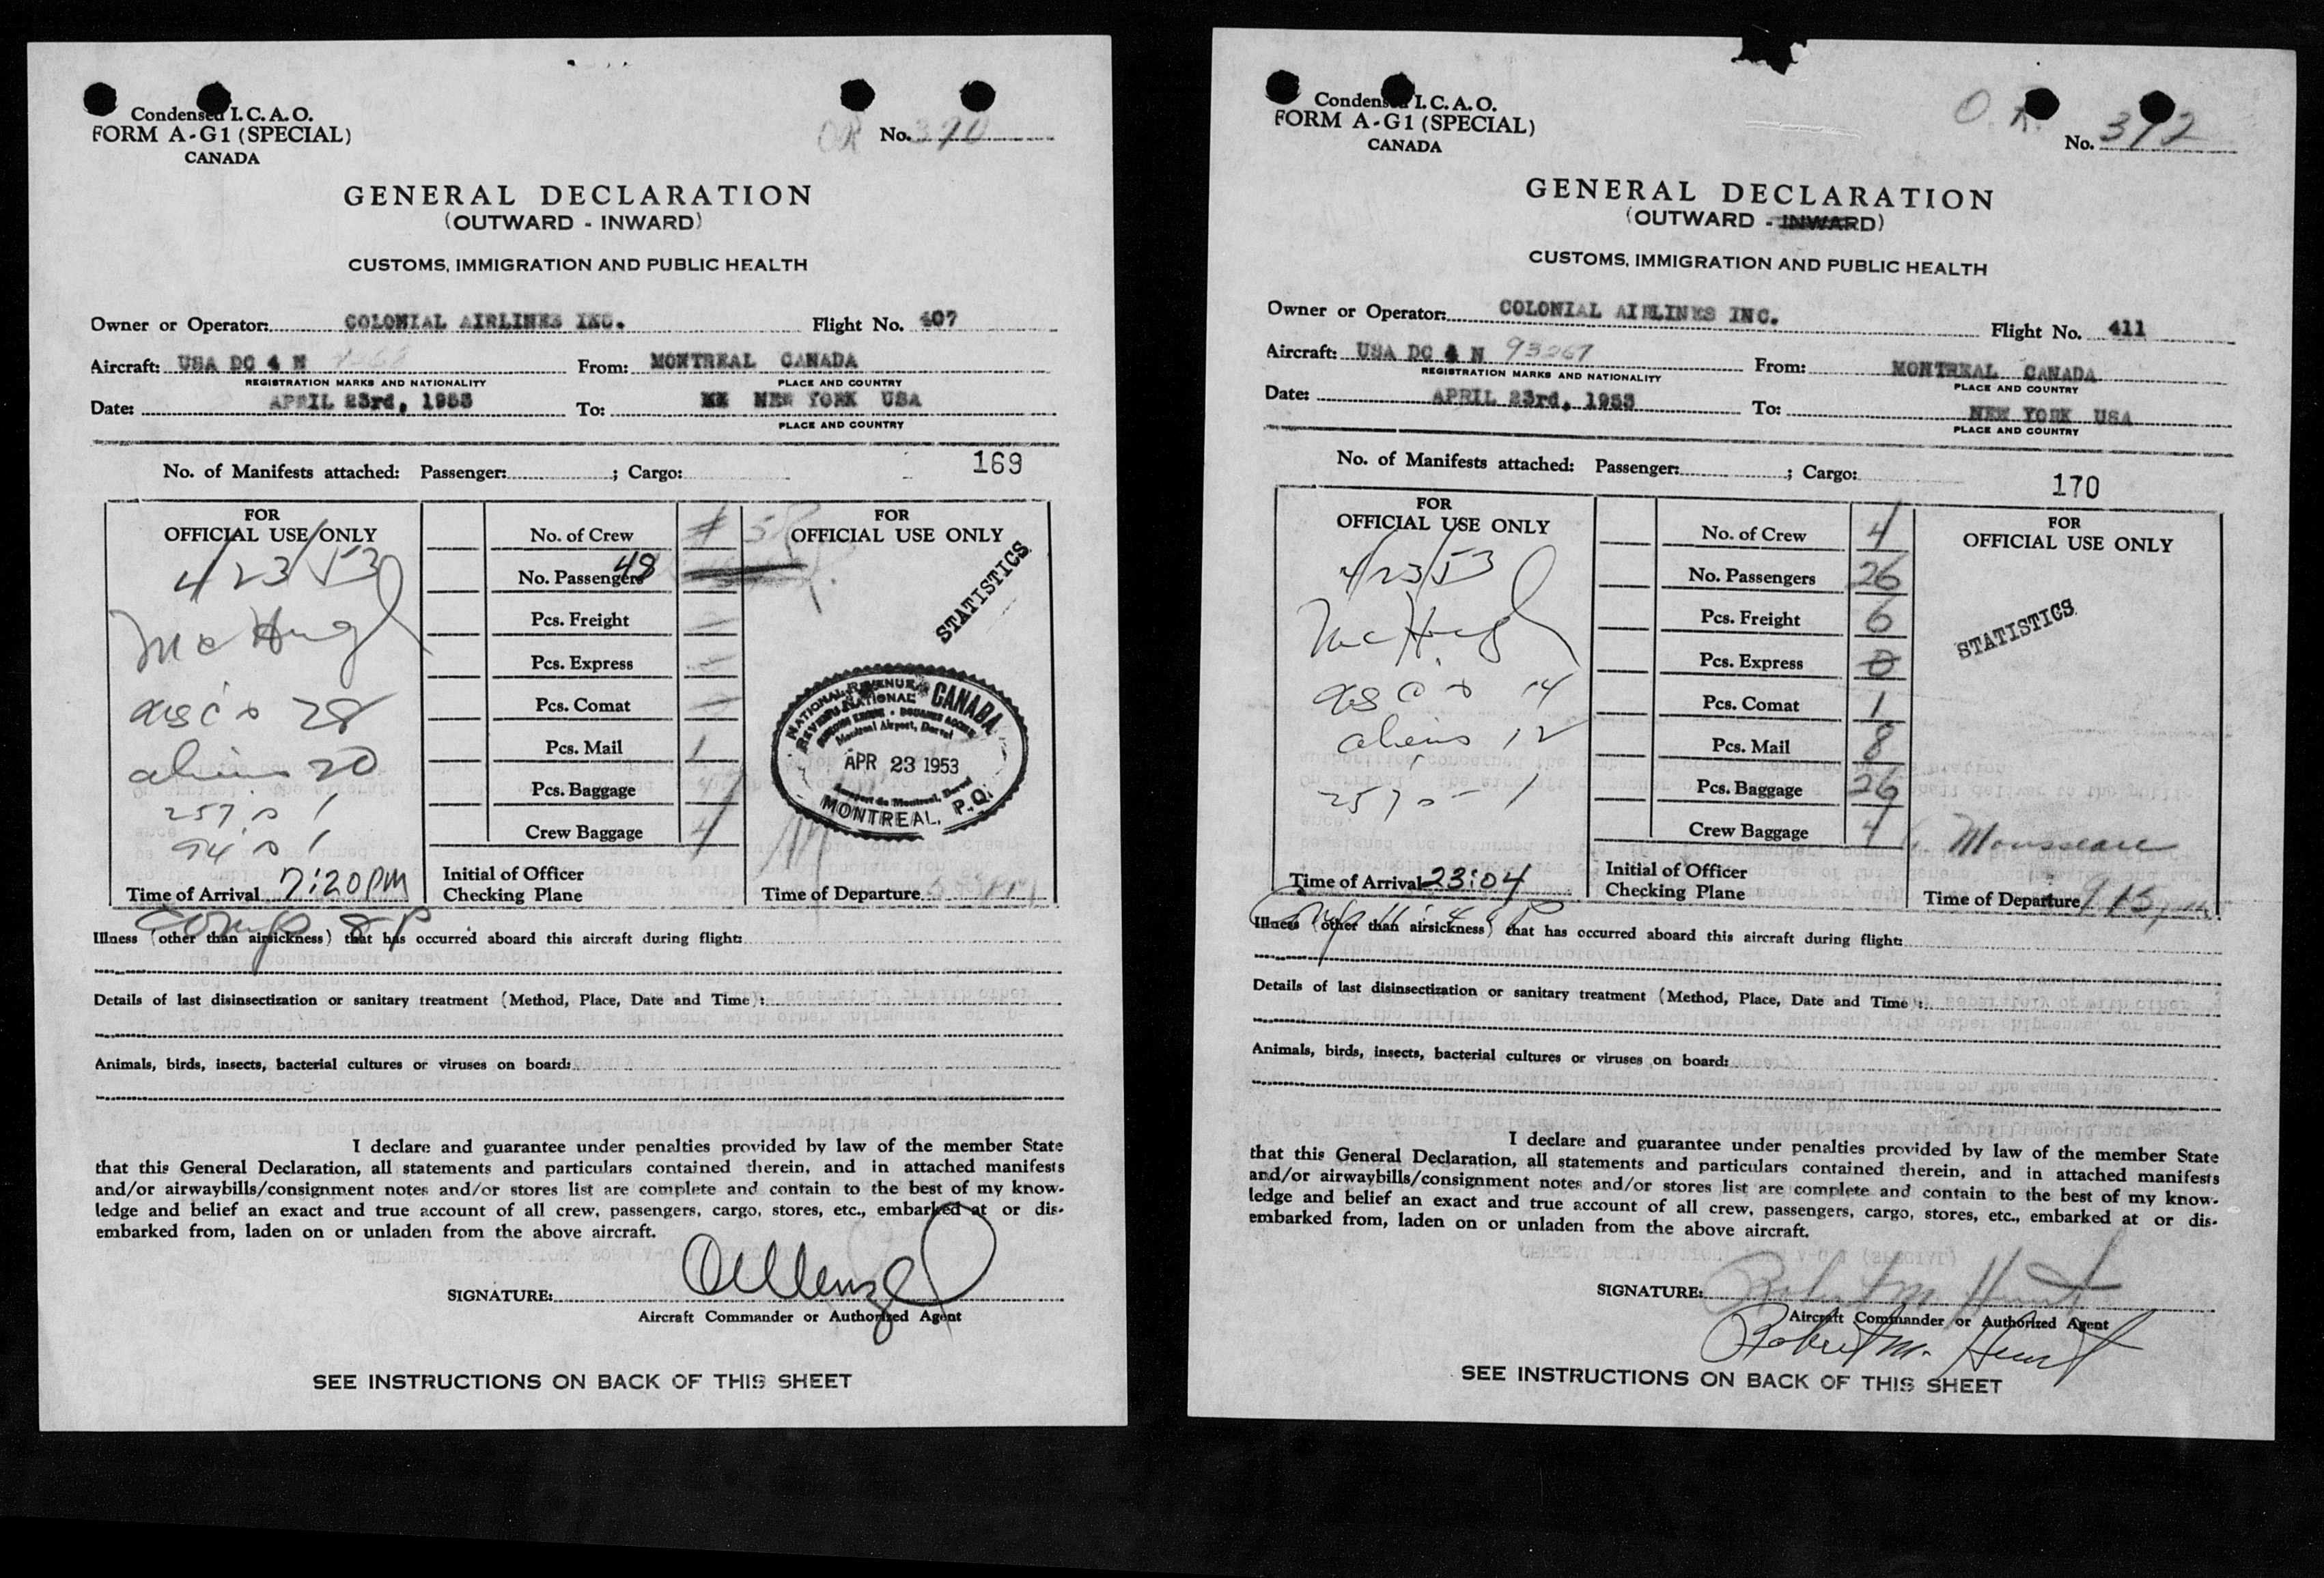 Condensed I. C. A. O.
FORM A-G1 (SPECIAL)
CANADA
No. 390
GENERAL DECLARATION
(OUTWARD - INWARD)
CUSTOMS, IMMIGRATION AND PUBLIC HEALTH
Owner or Operator: COLONIAL AIRLINES INC. Flight No. 407
Aircraft: USA DC 4 N From: MONTREAL CANADA
REGISTRATION MARKS AND NATIONALITY PLACE AND COUNTRY
Date: APRIL 23rd, 1953 To: NEW YORK USA
PLACE AND COUNTRY
No. of Manifests attached: Passenger: ; Cargo: 169
FOR
OFFICIAL USE ONLY
4/23/53
McHugh
usc's 28
aliens 20
257's 1
Time of Arrival 7:20PM
Comp
No. of Crew 4
No. Passengers 48
Pcs. Freight -
Pcs. Express -
Pcs. Comat -
Pcs. Mail 1
Pcs. Baggage
Crew Baggage 4
Initial of Officer
Checking Plane
FOR
OFFICIAL USE ONLY
STATISTICS
NATIONAL REVENUE CANADA
REVENU NATIONAL
Montreal Airport, Dorval
APR 23 1953
Aeroport de Montreal, Dorval
MONTREAL, P.Q.
Time of Departure
Illness (other than airsickness) that has occurred aboard this aircraft during flight:
Details of last disinsectization or sanitary treatment (Method, Place, Date and Time):
Animals, birds, insects, bacterial cultures or viruses on board:
I declare and guarantee under penalties provided by law of the member State
that this General Declaration, all statements and particulars contained therein, and in attached manifests
and/or airwaybills/consignment notes and/or stores list are complete and contain to the best of my know-
ledge and belief an exact and true account of all crew, passengers, cargo, stores, etc., embarked at or dis-
embarked from, laden on or unladen from the above aircraft.
SIGNATURE:
Aircraft Commander or Authorized Agent
SEE INSTRUCTIONS ON BACK OF THIS SHEET
Condensed I. C. A. O.
FORM A-G1 (SPECIAL)
CANADA
O.K.
No. 392
GENERAL DECLARATION
(OUTWARD - INWARD)
CUSTOMS, IMMIGRATION AND PUBLIC HEALTH
Owner or Operator: COLONIAL AIRLINES INC. Flight No. 411
Aircraft: USA DC 4 N 93267 From: MONTREAL CANADA
REGISTRATION MARKS AND NATIONALITY PLACE AND COUNTRY
Date: APRIL 23rd, 1953 To: NEW YORK USA
PLACE AND COUNTRY
No. of Manifests attached: Passenger: ; Cargo: 170
FOR
OFFICIAL USE ONLY
4/23/53
McHugh
usc's 14
aliens 12
257's - 1
Time of Arrival 23:04
Comp
No. of Crew 4
No. Passengers 26
Pcs. Freight 6
Pcs. Express 0
Pcs. Comat 1
Pcs. Mail 8
Pcs. Baggage 26
Crew Baggage 4
Initial of Officer
Checking Plane
FOR
OFFICIAL USE ONLY
STATISTICS
Mousseau
Time of Departure
Illness (other than airsickness) that has occurred aboard this aircraft during flight:
Details of last disinsectization or sanitary treatment (Method, Place, Date and Time):
Animals, birds, insects, bacterial cultures or viruses on board:
I declare and guarantee under penalties provided by law of the member State
that this General Declaration, all statements and particulars contained therein, and in attached manifests
and/or airwaybills/consignment notes and/or stores list are complete and contain to the best of my know-
ledge and belief an exact and true account of all crew, passengers, cargo, stores, etc., embarked at or dis-
embarked from, laden on or unladen from the above aircraft.
SIGNATURE: Robert M. Hunt
Aircraft Commander or Authorized Agent
Robert M. Hunt
SEE INSTRUCTIONS ON BACK OF THIS SHEET